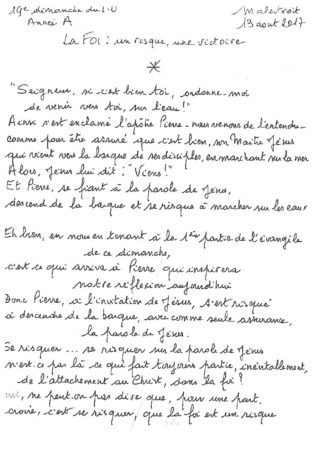 19e dimanche du T.O
Année A
Malestroit
13 aout 2017
La Foi : un risque, une victoire
*
"Seigneur, si c'est bien toi, ordonne-moi
de venir vers toi, sur l'eau !"
Ainsi s'est exclamé l'apôtre Pierre - nous venons de l'entendre -
comme pour être assuré que c'est bien, son Maître Jésus
qui vient vers la barque de ses disciples, en marchant sur la mer
Alors, Jésus lui dit : "Viens !"
Et Pierre, se fiant à la parole de Jésus,
descend de la barque et se risque à marcher sur les eaux
Eh bien, en nous en tenant à la 1ère partie de l'évangile
de ce dimanche,
c'est ce qui arrive à Pierre qui inspirera
notre réflexion aujourd'hui
Donc Pierre, à l'invitation de Jésus, s'est risqué
à descendre de la barque, avec comme seule assurance,
la parole de Jésus.
Se risquer ... se risquer sur la parole de Jésus
n'est-ce pas là ce qui fait toujours partie, inévitablement,
de l'attachement au Christ, dans la foi ?
ne peut-on pas dire que, pour une part,
croire, c'est se risquer, que la foi est un risque